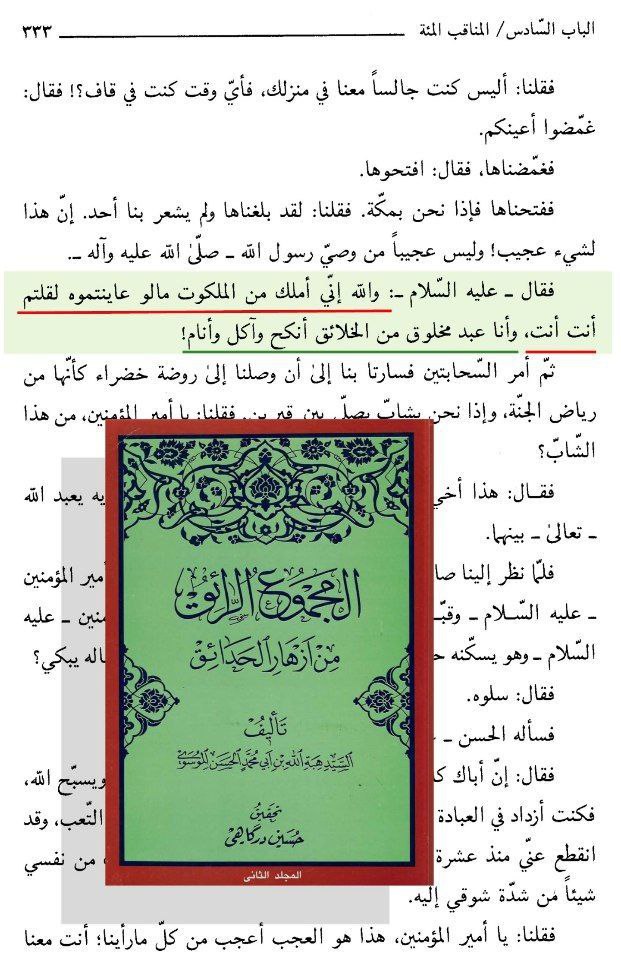 الباب السّادس/ المناقب المئة ٣٣٣
فقلنا: أليس كنت جالساً معنا في منزلك، فأيّ وقت كنت في قاف؟! فقال:
غمّضوا أعينكم.
فغمّضناها، فقال: افتحوها.
ففتحناها فإذا نحن بمكّة. فقلنا: لقد بلغناها ولم يشعر بنا أحد. إنّ هذا
لشيء عجيب! وليس عجيباً من وصيّ رسول الله ـ صلّىٰ الله عليه وآله ـ.
فقال ـ عليه السّلام ـ: والله إنّي أملك من الملكوت مالو عاينتموه لقلتم
أنت أنت، وأنا عبد مخلوق من الخلائق أنكح وآكل وأنام!
ثمّ أمر السّحابتين فسارتا بنا إلىٰ أن وصلنا إلىٰ روضة خضراء كأنّها من
رياض الجنّة، وإذا نحن بشابّ يصلّي بين قبرين. فقلنا: يا أمير المؤمنين، من هذا
الشّابّ؟
فقـال: هذا أخي يه يعبد الله
ـ تعالىٰ ـ بينهما.
فلمّا نظر إلينا صا أمير المؤمنين
ـ عليه السّـلام ـ وقبّـ منين ـ عليه
السّلام ـ وهو يسكّنه حـ اله يبكي؟
فقال: سلوه.
فسأله الحسن ـ
فقال: إنّ أباك كـ ويسبّح الله،
فكنت أزداد في العبادة التّعب، وقد
انقطع عنّي منذ عشرة من نفسي
شيئاً من شدّة شوقي إليه.
فقلنا: يا أمير المؤمنين، هذا هو العجب أعجب من كلّ مارأينا؛ أنت معنا
المجموع الرائق
من ازهار الحدائق
تأليف
السيد هبة الله بن ابي محمد الحسن الموسوي
تحقيق
حسين درگاهي
المجلد الثانی